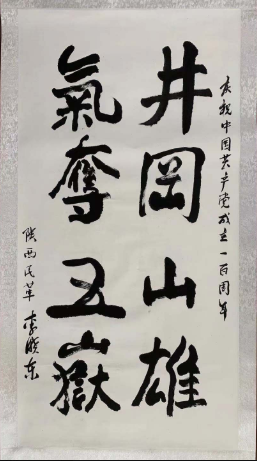 庆祝中国共产党成立一百周年
井岡山雄
氣奪五嶽
陕西民革 李晓东